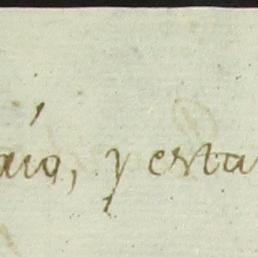 aío, y esta